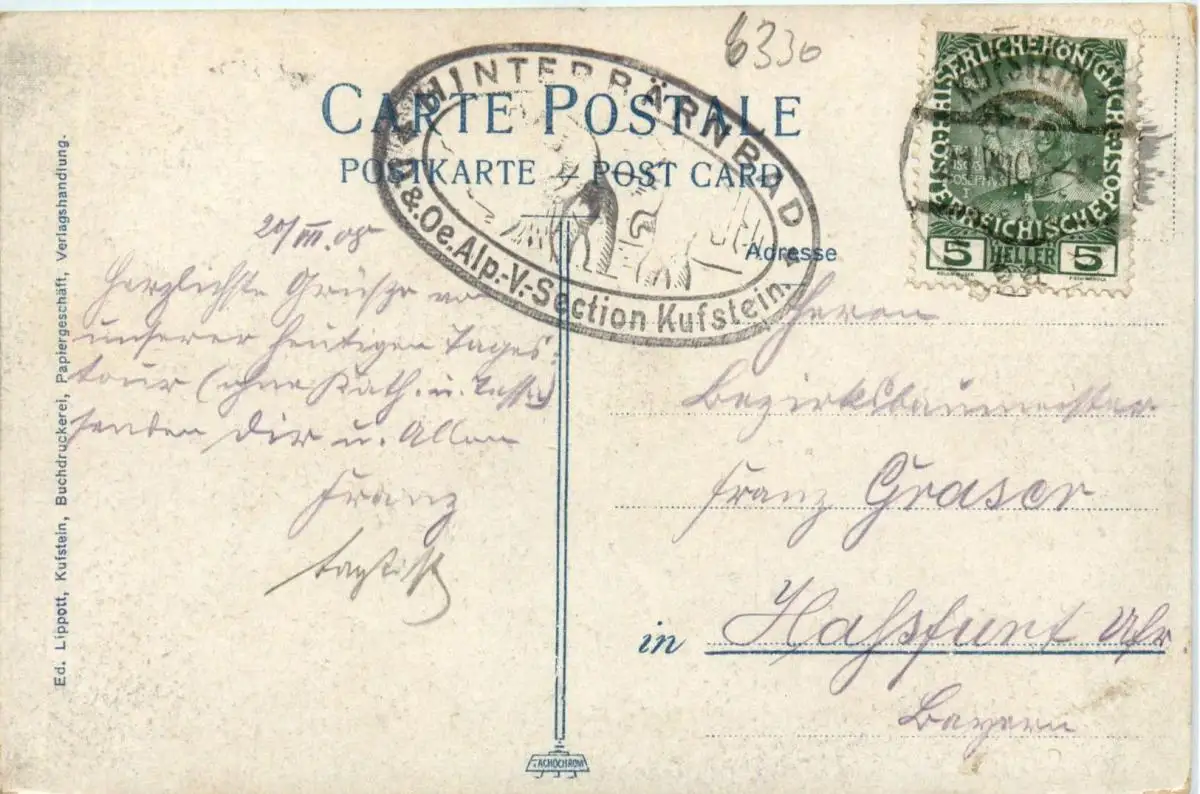 6330
CARTE POSTALE
POSTKARTE — POST CARD
HINTERBÄRNBAD
D.&.Oe.Alp.-V.-Section Kufstein.
KAISERLICHE KÖNIGLICHE
ÖSTERREICHISCHE POST
KUFSTEIN
5 HELLER 5
20/III. 08
Herzlichste Grüsze von
unserer heutigen Tages-
tour (ohne Kath. u.
senden Dir u. Allen
Franz
Adresse
Herrn
Bezirksbaumeister
Franz Graser
in Hassfurt
Bayern
Ed. Lippott, Kufstein, Buchdruckerei, Papiergeschäft, Verlagshandlung.
TACHOCHROM